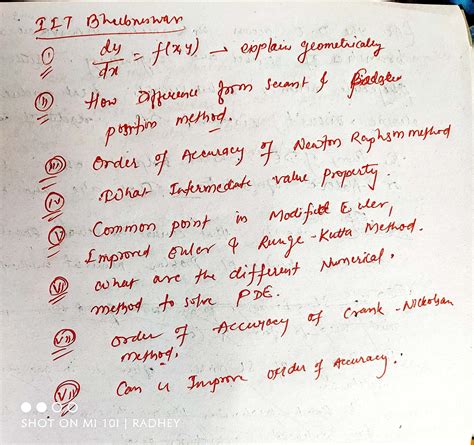 IIT Bhubneswar
(i) dy/dx = f(x,y) → explain geometrically
(ii) How Difference from Secant &
position method.
(iii) Order of Accuracy of Newton Raphson method
(iv) What Intermediate value property.
(v) Common point in Modified Euler,
Improved Euler & Runge-Kutta Method.
(vi) What are the different Numerical.
method to solve PDE.
(vii) Order of Accuracy of Crank-Nickolson
method.
(viii) Can u Improve order of Accuracy.
SHOT ON MI 10I | RADHEY